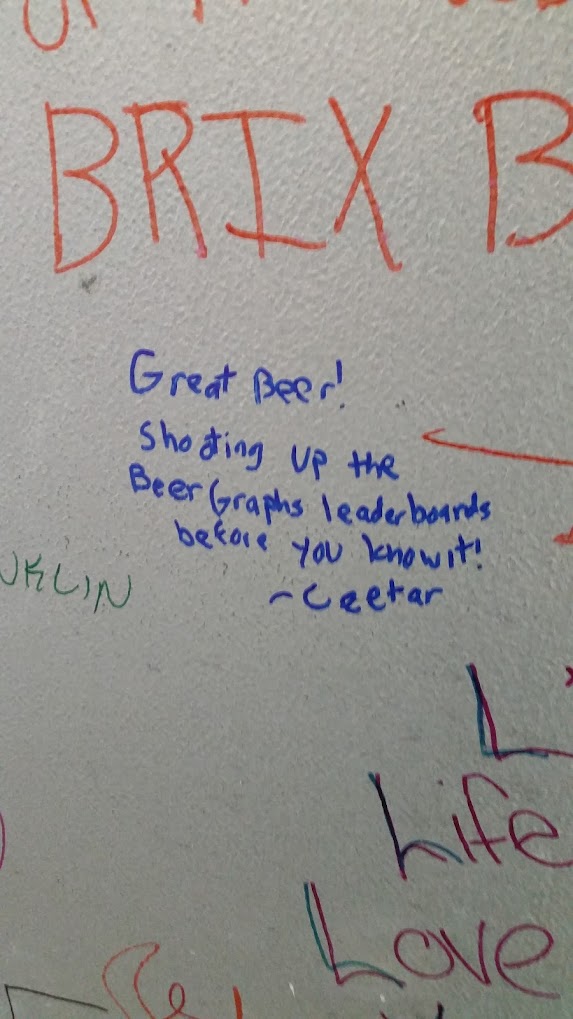 BRIX B
Great Beer!
Shooting up the
BeerGraphs leaderboards
before you know it!
~Ceetar
UKLIN
L
Life
Love